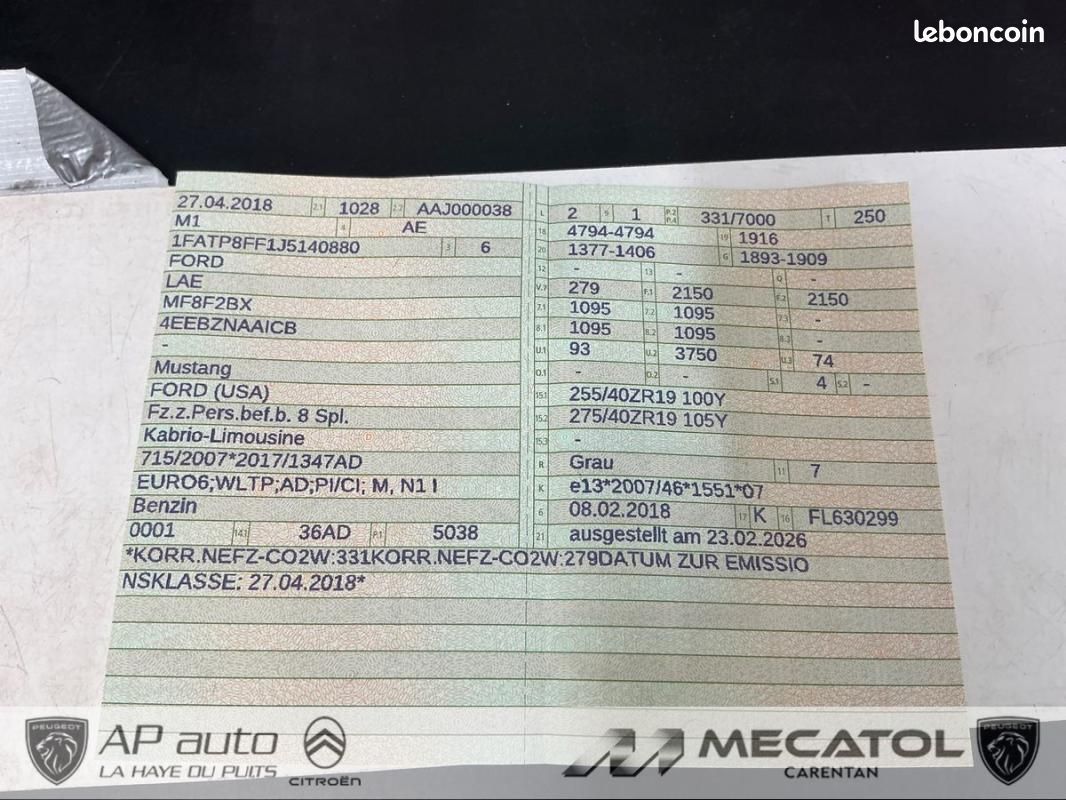 leboncoin
27.04.2018 2.1 1028 2.2 AAJ000038
M1 4 AE
1FATP8FF1J5140880 3 6
FORD
LAE
MF8F2BX
4EEBZNAAICB
-
Mustang
FORD (USA)
Fz.z.Pers.bef.b. 8 Spl.
Kabrio-Limousine
715/2007*2017/1347AD
EURO6;WLTP;AD;PI/CI; M, N1 I
Benzin
0001 14.1 36AD P.1 5038
L 2 9 1 P.2 P.4 331/7000 T 250
18 4794-4794 19 1916
20 1377-1406 G 1893-1909
12 - 13 - Q -
V.7 279 F.1 2150 F.2 2150
7.1 1095 7.2 1095 7.3 -
8.1 1095 8.2 1095 8.3 -
U.1 93 U.2 3750 U.3 74
O.1 - O.2 - S.1 4 S.2 -
15.1 255/40ZR19 100Y
15.2 275/40ZR19 105Y
15.3 -
R Grau 11 7
K e13*2007/46*1551*07
6 08.02.2018 17 K 16 FL630299
21 ausgestellt am 23.02.2026
*KORR.NEFZ-CO2W:331KORR.NEFZ-CO2W:279DATUM ZUR EMISSIO
NSKLASSE: 27.04.2018*
PEUGEOT
AP auto
LA HAYE DU PUITS
CITROËN
MECATOL
CARENTAN
PEUGEOT